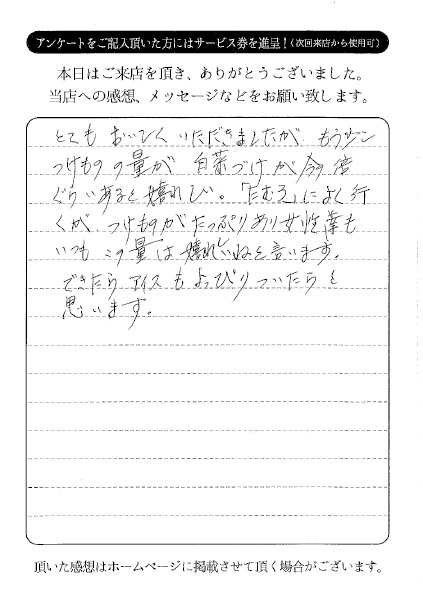 アンケートをご記入頂いた方にはサービス券を進呈!(次回来店から使用可)
本日はご来店を頂き、ありがとうございました。
当店への感想、メッセージなどをお願い致します。
とても おいしく いただきましたが もう少し
つけもの の量が 白菜づけ が 今の倍
ぐらいあると嬉れしい。「たむろ」によく行
くが、つけものがたっぷりあり女性軍も
いつも この量は嬉れしいねと言います。
できたら アイス も ょっぴり ついたらと
思います。
頂いた感想はホームページに掲載させて頂く場合がございます。